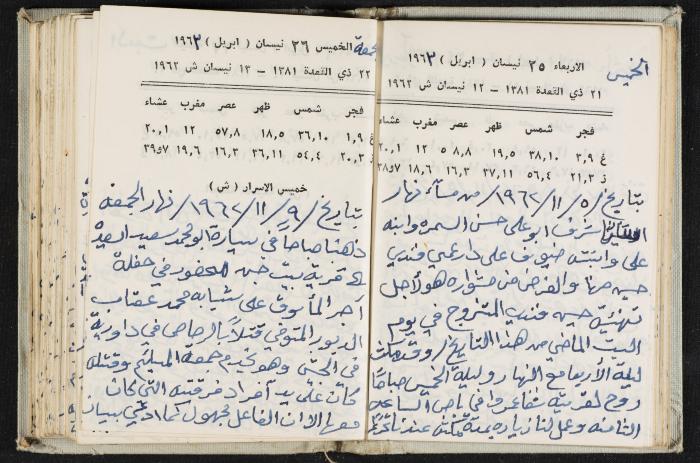 الخميس
الاربعاء ٢٥ نيسان ( ابريل ) ١٩٦٣
٢١ ذي القعدة ١٣٨١ – ١٢ نيسان ش ١٩٦٢
فجر شمس ظهر عصر مغرب عشاء
غ ٣,٩ ٣٨,١٠ ١٩,٥ ٥٨,٨ ١٢ ٢٠,١
ز ٢١,٣ ٥٦,٤ ٣٧,١١ ١٦,٣ ١٨,٦ ٣٨و٧
بتاريخ / ٥ / ١١ / ١٩٦٢ / من مساء نهار
شرف ابو علي حسن السمره وابنه
علي وابنته ضيوف على دار عمي فندي
حسين مهنا والغرض من مشواره هو لأجل
تهنئية حسين فندي المتزوج في يوم
السبت الماضي من هذا التاريخ / وقد مكث
ليلة الأربعا مع النهار وليلة الخميس صباحاً
روح لقريته شفاعمرو في باص الساعه
الثامنه وعمل لنا زياره
جمعة
الخميس ٢٦ نيسان ( ابريل ) ١٩٦٣
٢٢ ذي القعدة ١٣٨١ – ١٣ نيسان ش ١٩٦٢
فجر شمس ظهر عصر مغرب عشاء
غ ١,٩ ٣٦,١٠ ١٨,٥ ٥٧,٨ ١٢ ٢٠,١
ز ٢٠,٣ ٥٤,٤ ٣٦,١١ ١٦,٣ ١٩,٦ ٣٩و٧
خميس الاسرار ( ش )
بتاريخ / ٩ / ١١ / ١٩٦٢ / نهار الجمعه
ذهبنا صباحاً في سيارة ابو محمد سعيد اسعيد
الى قرية بيت جن للحضور في حفلة
آجر المأسوف على شبابه محمد عقاب
الدبور المتوفي قتلاً بالرصاص في داورية
في الجيش وهو بخيم جمعة المسيليم وقتله
كان على يد آفراد فرقتيه التي كان
معها الا ان الفاعل مجهول كما ادعي ببيان